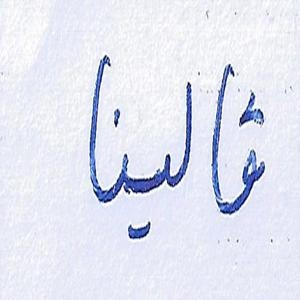 غالينا